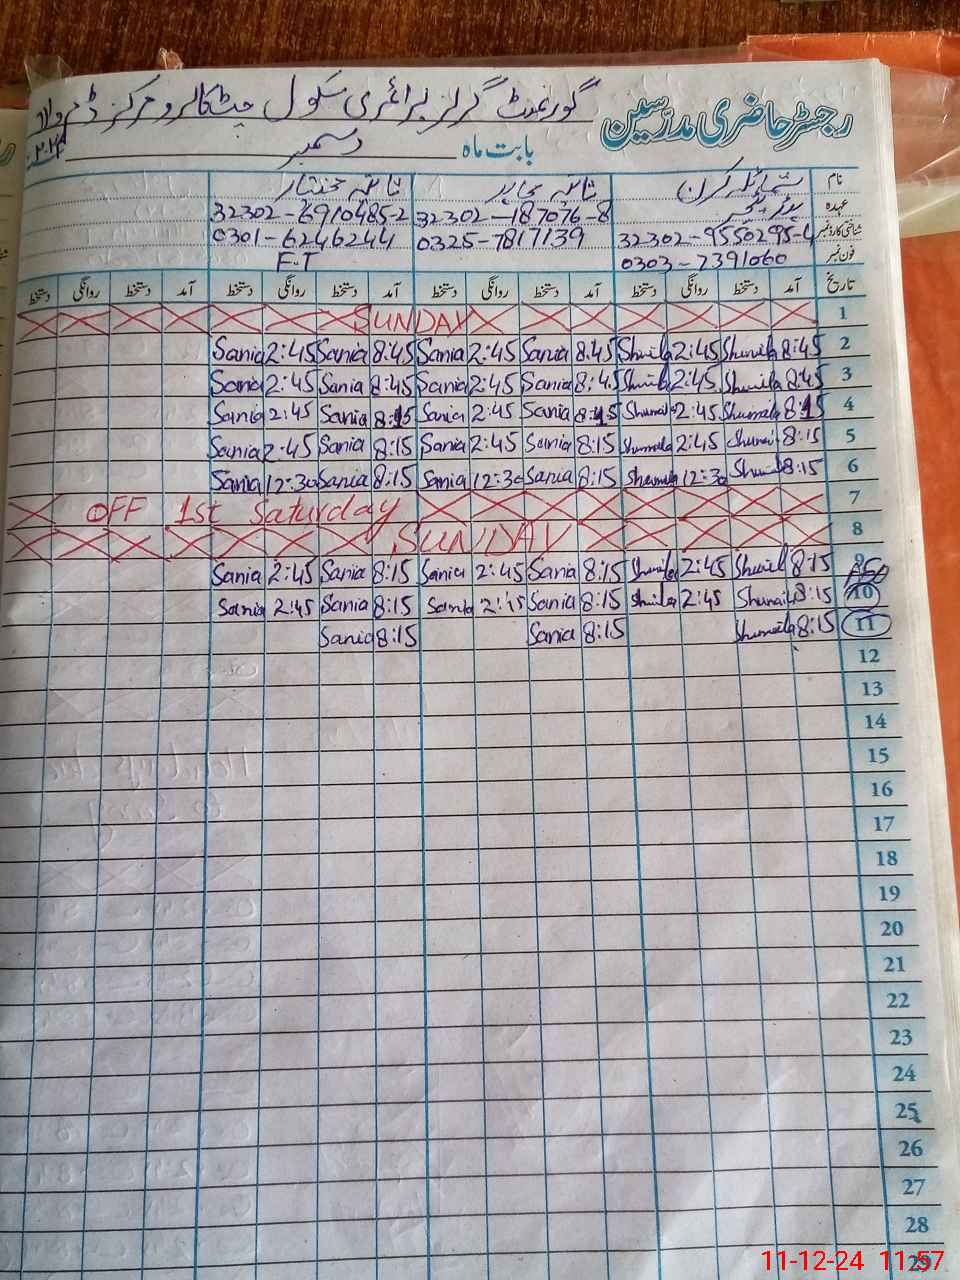 رجسٹر حاضری مدرسین گورنمنٹ گرلز پرائمری سکول مرکز
بابت ماہ دسمبر
نام شمائلہ کرن ثانیہ جابر ثانیہ مختار
عہدہ 32302-187076-8 32302-6910485-2
شناختی کارڈ نمبر 32302-9550295- 0325-7817139 0301-6246244
فون نمبر 0303-7391060 F.T
تاریخ آمد دستخط روانگی دستخط آمد دستخط روانگی دستخط آمد دستخط روانگی دستخط آمد دستخط روانگی دستخط
SUNDAY 1
Sania 2:45 Sania 8:45 Sania 2:45 Sania 8:45 Shumila 2:45 Shumila 8:45 2
Sania 2:45 Sania 8:45 Sania 2:45 Sania 8:45 Shumila 2:45 Shumila 8:45 3
Sania 2:45 Sania 8:15 Sania 2:45 Sania 8:15 Shumaila 2:45 Shumaila 8:15 4
Sania 2:45 Sania 8:15 Sania 2:45 Sania 8:15 Shumaila 2:45 Shumail 8:15 5
Sania 12:30 Sania 8:15 Sania 12:30 Sania 8:15 Shumaila 12:30 8:15 6
OFF 1st Saturday 7
SUNDAY 8
Sania 2:45 Sania 8:15 Sania 2:45 Sania 8:15 Shumila 2:45 8:15 9
Sania 2:45 Sania 8:15 Sania 2:45 Sania 8:15 Shumila 2:45 Shumaila 8:15 10
Sania 8:15 Sania 8:15 Shumaila 8:15 11
12
13
14
15
16
17
18
19
20
21
22
23
24
25
26
27
28
29
11-12-24 11:57